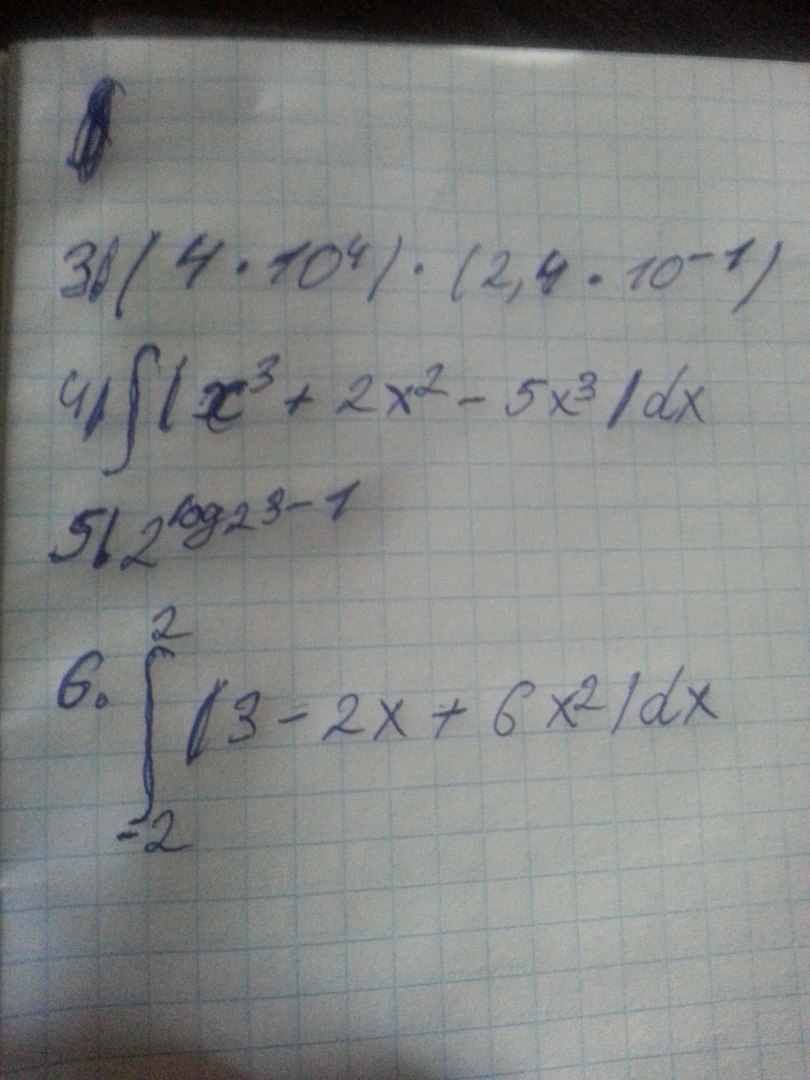 3) (4 · 10⁴) · (2,4 · 10⁻¹)
4) ∫(x³ + 2x² - 5x³)dx
5) 2^(log₂3-1)
6. ∫₋₂² (3 - 2x + 6x²)dx